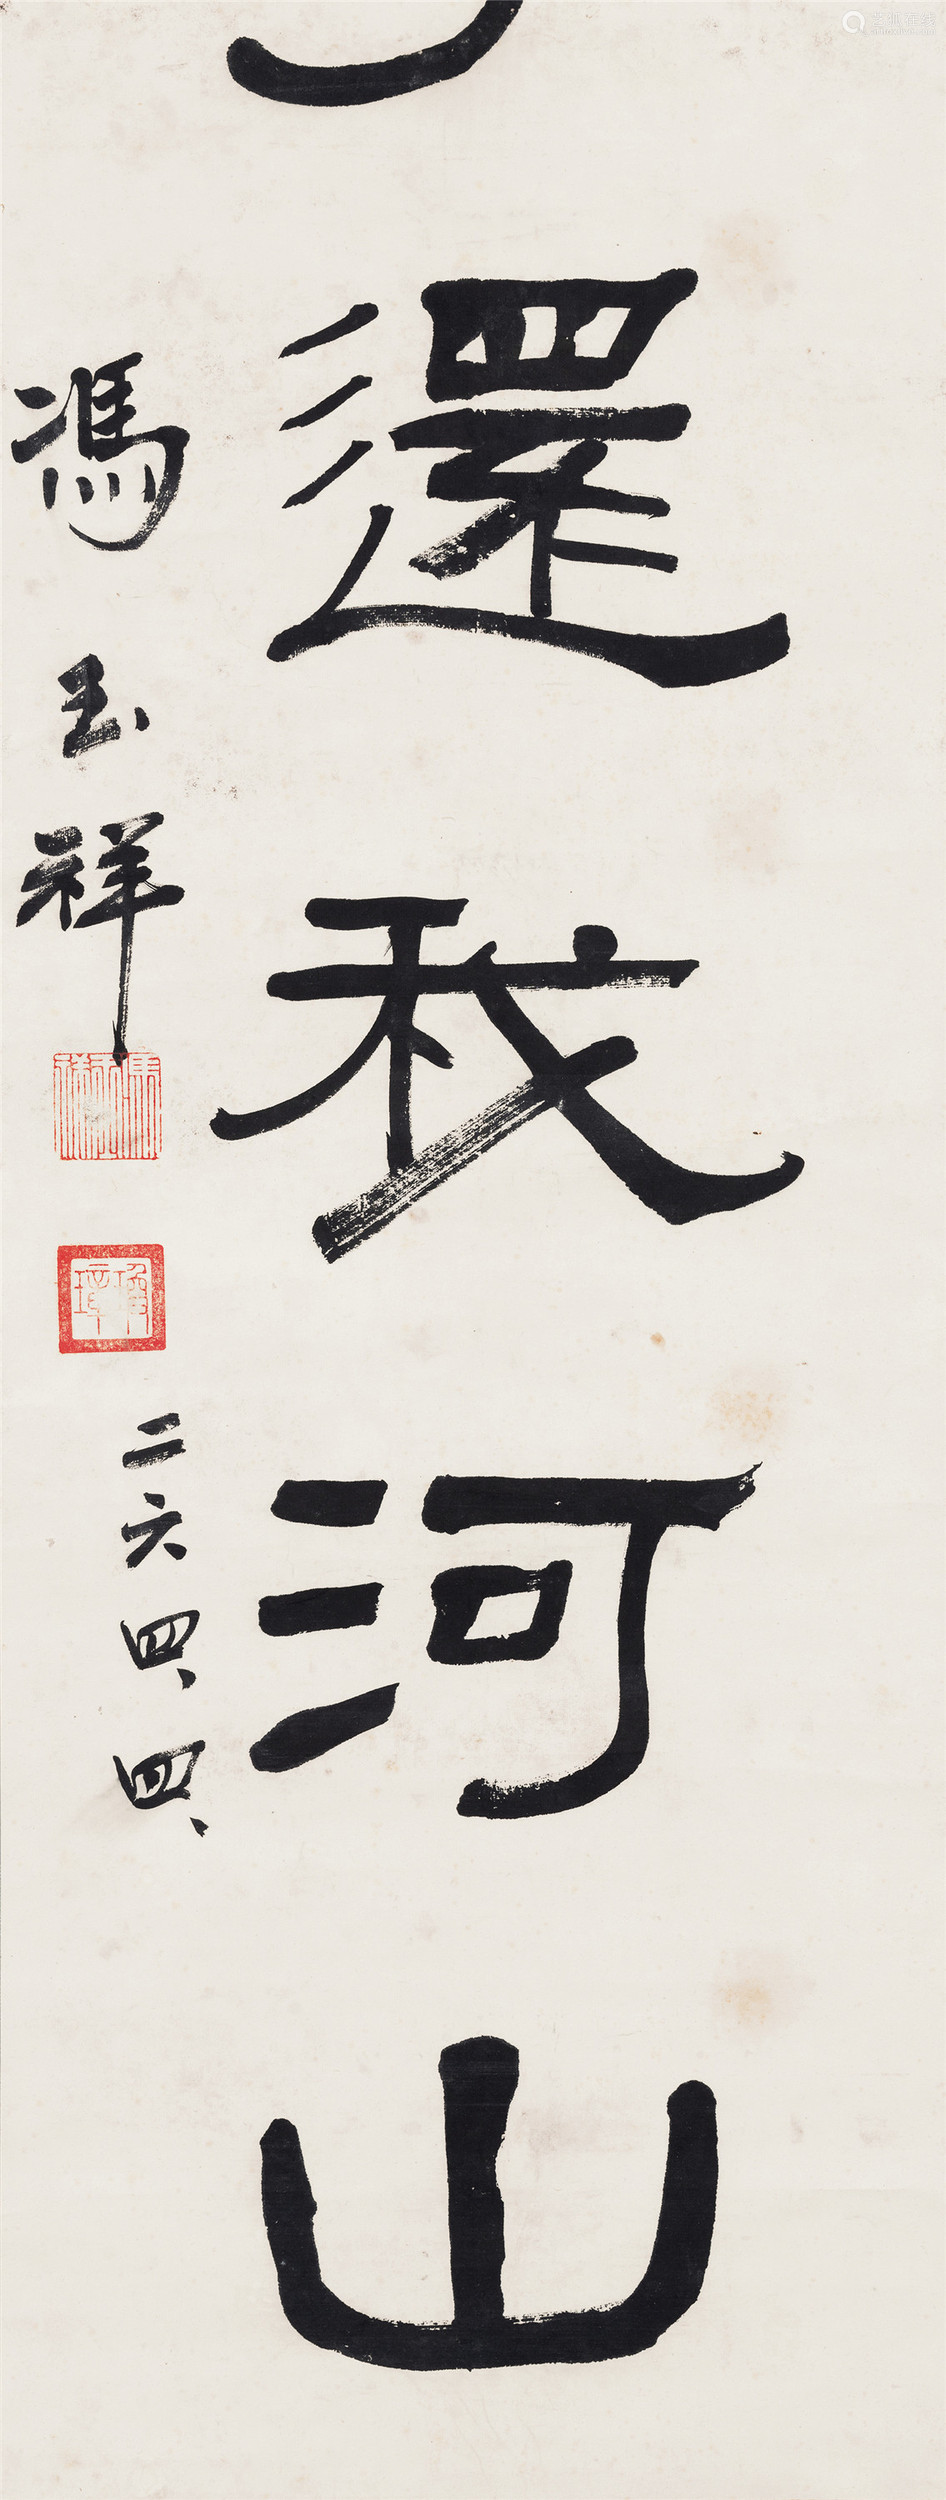 還我河山
馮玉祥
二六四、四、